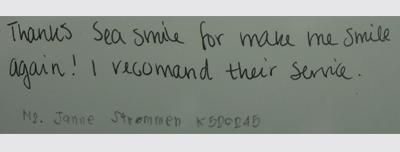 Thanks Sea smile for make me smile
again! I recomand their service.
Ms. Janne Strømmen K520245